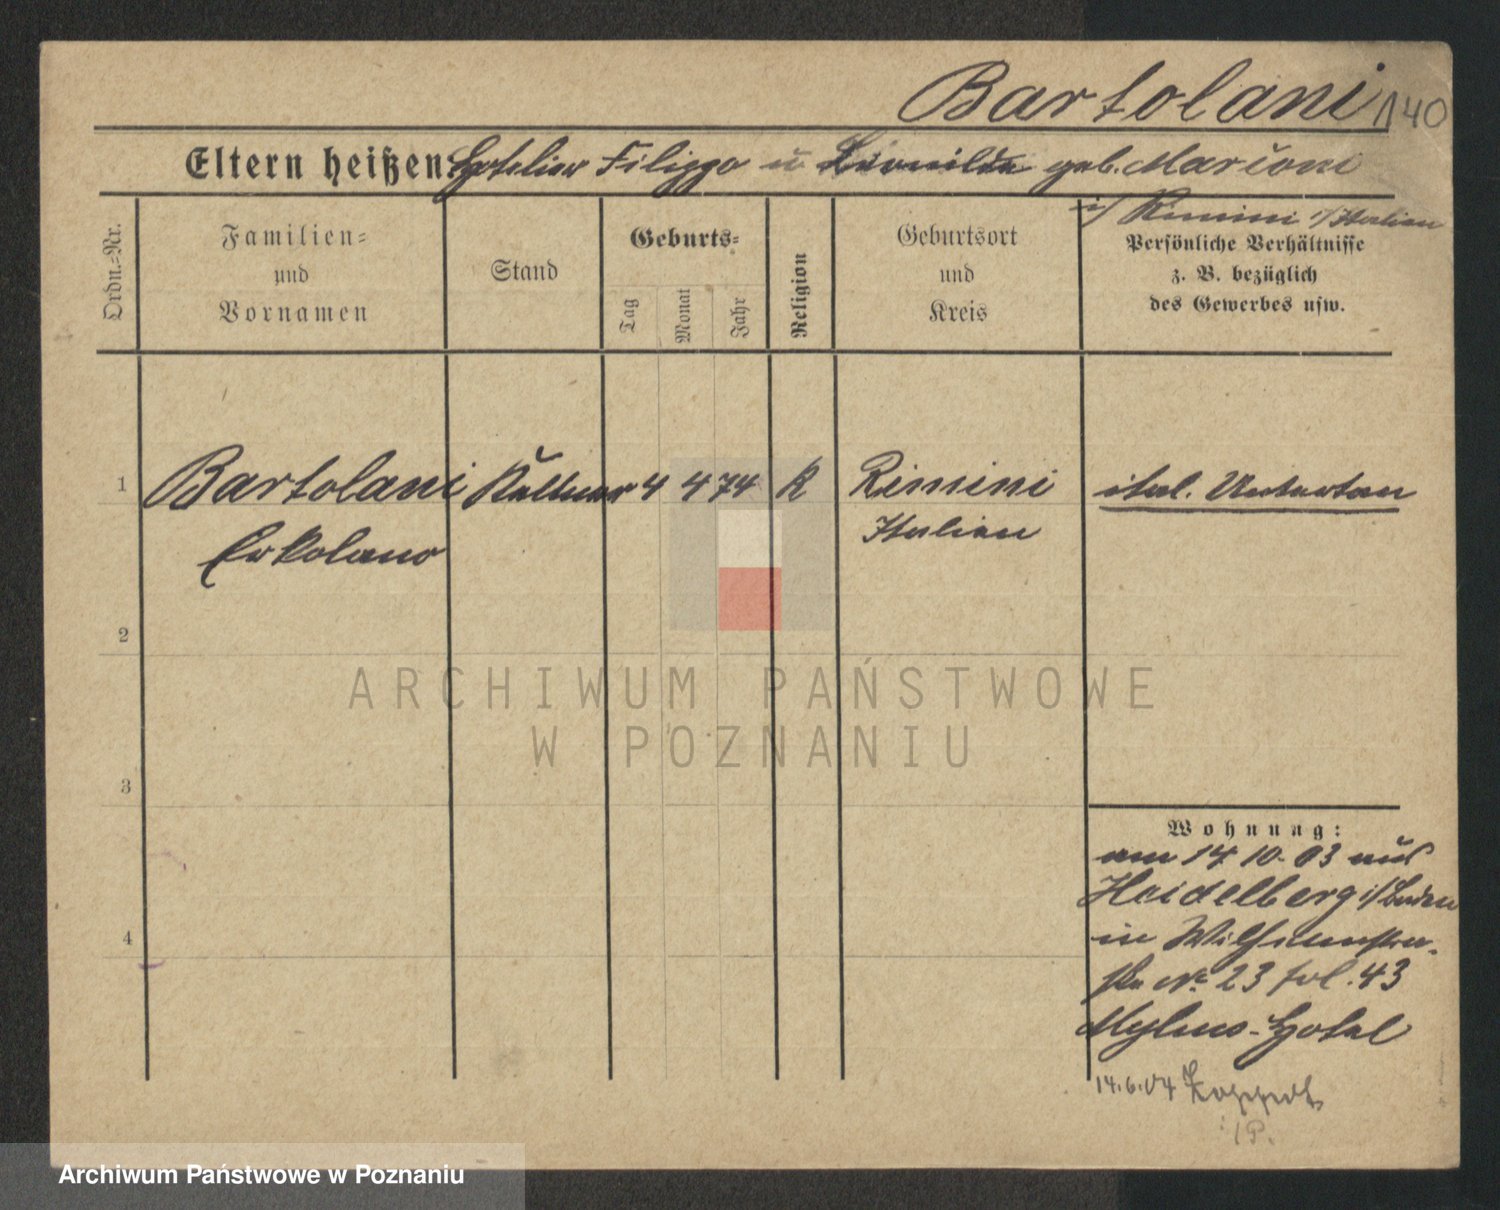 Bartolani 140
Eltern heißen: Hotelier Filippo u Leonilda geb. Marioni
i/ Rimini i/Italien
Ordn.-Nr.
Familien-
und
Vornamen
Stand
Geburts-
Tag
Monat
Jahr
Religion
Geburtsort
und
Kreis
Persönliche Verhältnisse
z. B. bezüglich
des Gewerbes usw.
1 Bartolani Kellner 4 4 74 K Rimini ital. Untertan
Erkolano Italien
2
3
4
Wohnung:
am 14 10. 03 aus
Heidelberg i/Baden
in Wilhelmstra-
ße No 23 fol. 43
Mylius-Hotel
14.6.04 Zoppot
ARCHIWUM PAŃSTWOWE
W POZNANIU
Archiwum Państwowe w Poznaniu